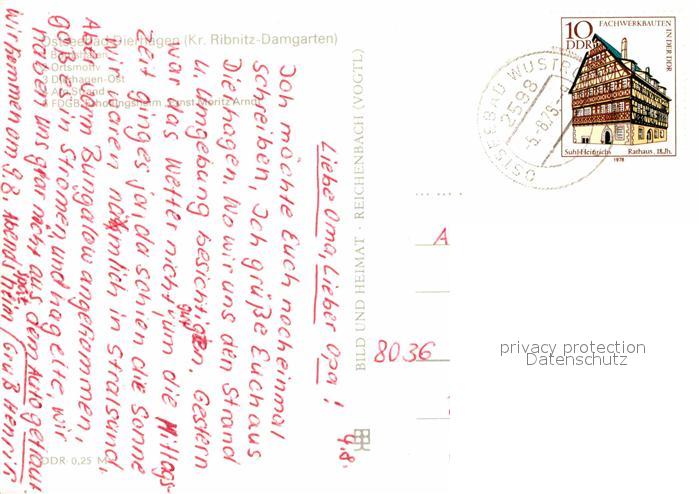 Ostseebad Dierhagen (Kr. Ribnitz-Damgarten)
Ortsmotiv
3 Dierhagen-Ost
4 Am Strand
FDGB-Erholungsheim „Ernst Moritz Arndt"
DDR · 0,25 M
BILD UND HEIMAT · REICHENBACH (VOGTL)
4.8.
Liebe Oma, Lieber Opa!
Ich möchte Euch noch einmal
schreiben, Ich grüße Euch aus
Dierhagen. Wo wir uns den Strand
u. Umgebung besichtigten. Gestern
war das Wetter nicht gut, um die Mittags-
zeit ging es ja, da schien die Sonne
Wir waren nämlich in Stralsund,
Aber dann Bungalow angekommen,
goß es in Strömen, und hagelte, wir
haben uns gar nicht aus dem Auto getraut
Wir kommen am 9.8. Abends spät heim / Gruß Henrik
10
DDR
FACHWERKBAUTEN
IN DER DDR
Suhl-Heinrichs Rathaus, 18.Jh.
1978
OSTSEEBAD WUSTR
2598
-5.-8.79.-
A
8036
privacy protection
Datenschutz